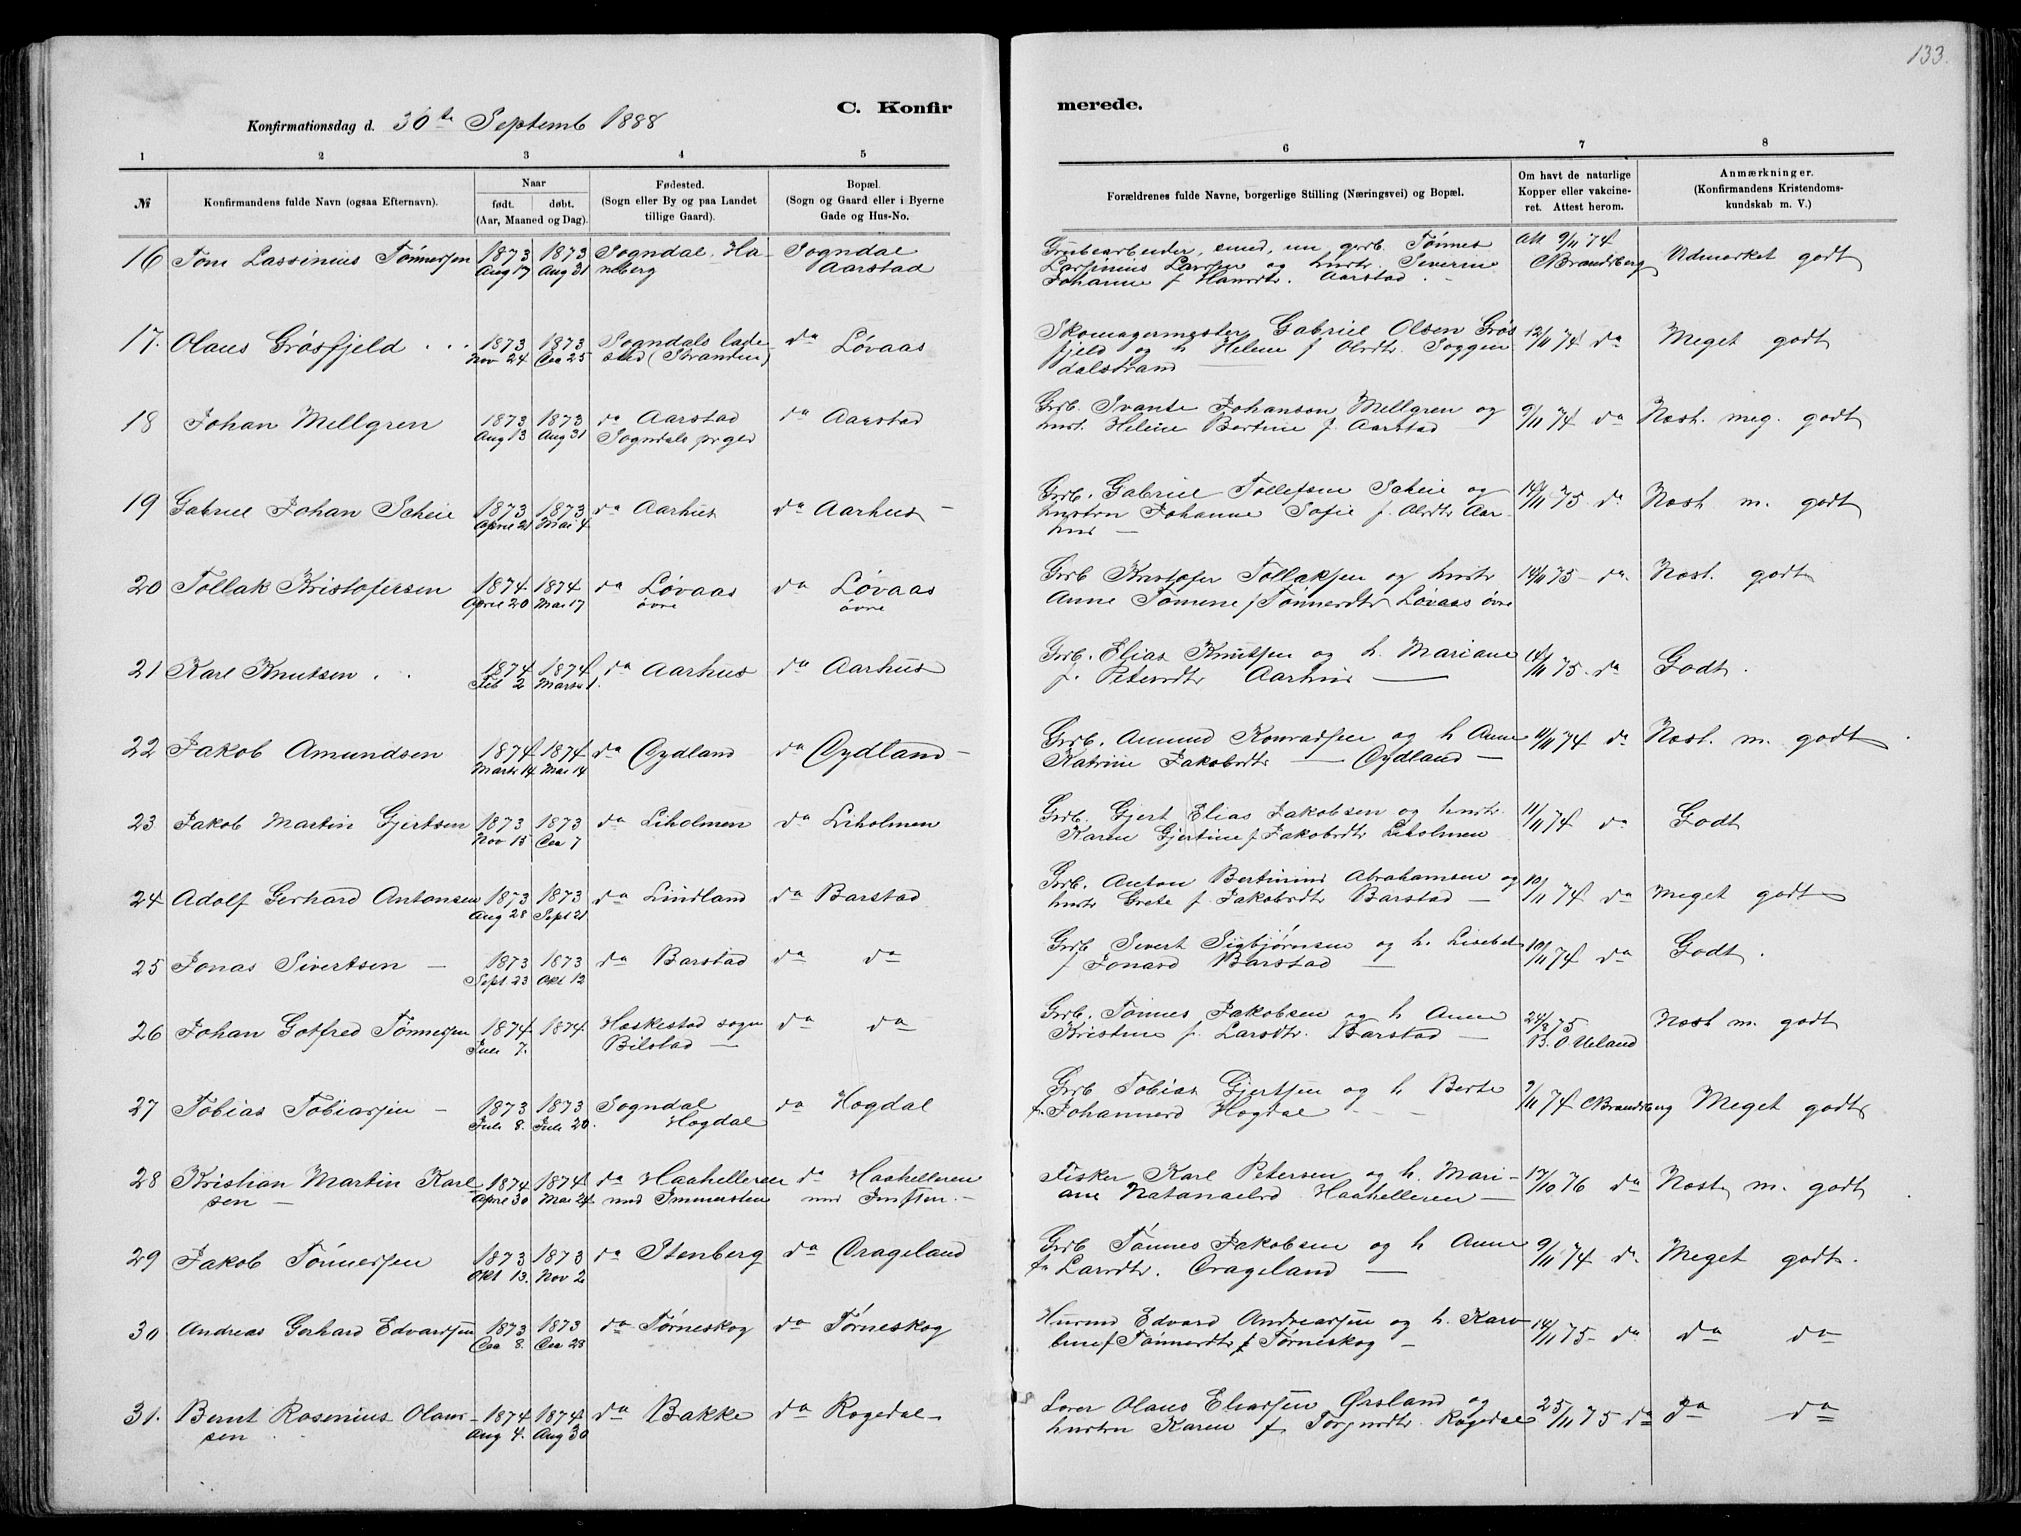 133.
C. Konfirmerede.
Konfirmationsdag d. 30te Septemb 1888
1 2 3 4 5 6 7 8
№ Konfirmandens fulde Navn (ogsaa Efternavn). Naar født. døbt. (Aar, Maaned og Dag). Fødested. (Sogn eller By og paa Landet tillige Gaard). Bopæl. (Sogn og Gaard eller i Byerne Gade og Hus-No. Forældrenes fulde Navne, borgerlige Stilling (Næringsvei) og Bopæl. Om havt de naturlige Kopper eller vakcineret. Attest herom. Anmærkninger. (Konfirmandens Kristendomskundskab m. V.)
16 Tønnersen 1873 Aug 17 1873 Aug 31 Sogndal Sogndal Aarstad
Tønnes
og hustr. Severine
Johanne f Hansdtr. Aarstad Att 9/11 74 CBrandsberg Udmærket godt
17. Olaus Grøsfjeld 1873 Nov 24 1873 25 Sogndals ladested (Stranden) da Løvaas
Skomagermester Gabriel Olsen Grøs
fjeld og h Helene f Olsdtr. Soggen
dalstrand 12/11 74 da Meget godt
18 Johan Mellgren 1873 Aug 13 1873 Aug 31 da Aarstad Sogndals prgld da Aarstad
Grb. Svante Johanson Mellgren og
hust. Helene Bertine f. Aarstad 9/11 74 da Næst. meg. godt
19 Gabriel Johan Scheie 1873 April 21 1873 Mai 4 da Aarhus da Aarhus
Grb. Gabriel Tollefsen Scheie og
hustru Johanne Sofie f. Olsdtr Aar
hus 14/11 75. da Næst m. godt
20 Tollak Kristofersen 1874 April 20 1874 Mai 17 da Løvaas øvre da Løvaas øvre
Grb Kristofer Tollaksen og hustr
Anne f Tønnesdtr Løvaas øvre 14/11 75 - da. Næst. godt
21 Karl Knutsen 1874 Feb 2 1874 Marts 1. da Aarhus da Aarhus
Grb. Elias Knutsen og h. Mariane
f. Petersdtr Aarhus 14/11 75. da Godt.
22 Jakob Amundsen 1874 Marts 14 1874 Mai 14 da Eydland da Eydland
Grb. Amund Konradsen og h Anne
Katrine Jakobsdtr Eydland 11/11 74 da Næst. m. godt
23 Jakob Martin Gjertsen 1873 Nov 15 1873 7 da Liholmen da Liholmen
Grb. Gjert Elias Jakobsen og hustr
Karen Gjertine f Jakobsdtr Liholmen 11/11 74 da Godt
24 Adolf Gerhard Antonsen 1873 Aug 28 1873 Sept 21 da Lindland da Barstad
Grb. Anton Bertinius Abrahamsen og
hustr Grete f. Jakobsdtr Barstad 10/11 74 da Meget godt
25 Jonas Sivertsen 1873 Sept 23 1873 Okt 12 da Barstad da da
Grb Sivert Sigbjørnsen og h. Lisebet
f Jonasd Barstad 10/11 74 da Godt.
26 Johan Gotfred Tønnesen 1874 Juli 7. 1874 Heskestad sogn Bilstad da da
Grb. Tønnes Jakobsen og h Anne
Kristine f. Larsdtr. Barstad 24/8 75 B. O Ueland Næst m. godt
27 Tobias Tobiassen 1873 Juli 8. 1873 Juli 20. Sogndal Hogdal da Hogdal
Grb Tobias Gjertsen og h Berte
f. Johannesd Hogdal 9/11 74 CBrandsberg Meget godt
28 Kristian Martin Karlsen 1874 April 30 1874 Mai 24 da Haahelleren da Haahelleren
Fisker Karl Petersen og h. Mari
ane Natanaelsd Haahelleren 17/10 76 da Næst m. godt
29 Jakob Tønnessen 1873 Okt 13. 1873 Nov 2 da Stenberg da Orageland
Grb Tønnes Jakobsen og h Anne
f. Larsdtr. Orageland 9/11 74 da Meget godt.
30 Andreas Gerhard Edvardsen 1873 8. 1873 28 da Tørneskog da Tørneskog
Husmd Edvard Andreassen og h. Karo
line f Tønnesdtr Tørneskog 14/11 75 - da da da
31. Bernt Rosenius Olaussen 1874 Aug 4. 1874 Aug 30 da Bakke da Rogedal
Lærer Olaus Eliassen Ørsland og
hustru Karen f Torgersdtr. Rogedal 25/11 75 da da da